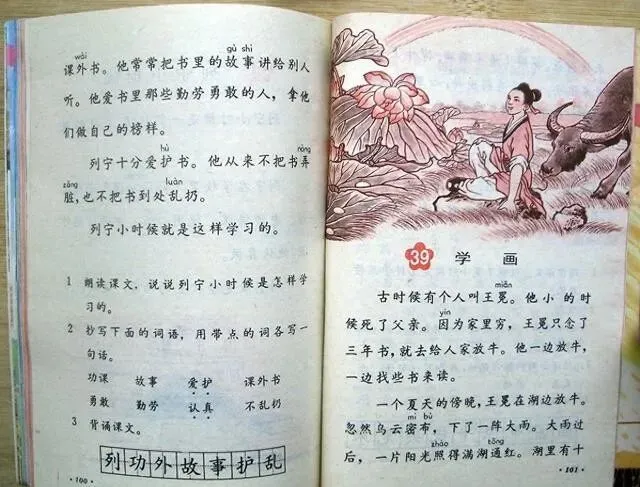 wài
课外书。他常常把书里的故事讲给别人
gù shi
听。他爱书里那些勤劳勇敢的人，拿他
们做自己的榜样。
hù
列宁十分爱护书。他从来不把书弄
nòng
zāng
脏，也不把书到处乱扔。
luàn
列宁小时候就是这样学习的。
1 朗读课文，说说列宁小时候是怎样学
习的。
2 抄写下面的词语，用带点的词各写一
句话。
功课 故事 爱护 课外书
勇敢 勤劳 认真 不乱扔
3 背诵课文。
列功外故事护乱
·100·
39 学 画
miǎn
古时候有个人叫王冕。他小的时
yīn
候死了父亲。因为家里穷，王冕只念了
三年书，就去给人家放牛。他一边放牛，
一边找些书来读。
一个夏天的傍晚，王冕在湖边放牛。
mì bù
忽然乌云密布，下了一阵大雨。大雨过
zhào tōng
后，一片阳光照得满湖通红。湖里有十
·101·